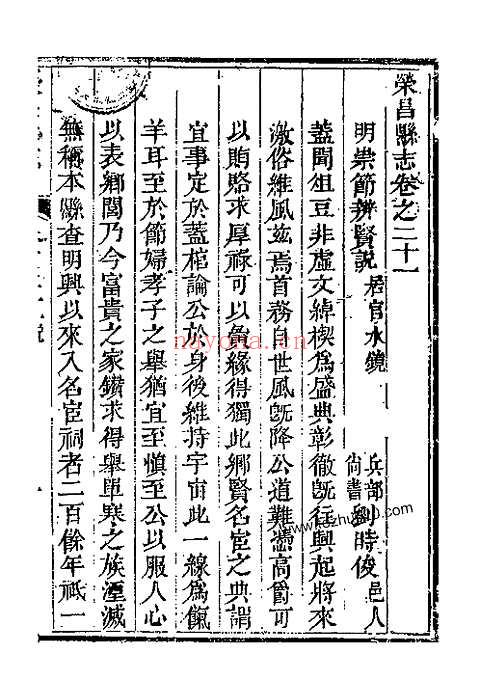 榮昌縣志卷之二十一
明崇節辨賢說 居官水鏡 兵部尚書劉時俊 邑人
蓋聞俎豆非虛文綽楔為盛典彰徹旣行興起將來
激俗維風茲焉首務自世風旣降公道難憑高爵可
以賄賂求厚祿可以夤緣得獨此鄉賢名宦之典謂
宜事定於蓋棺論公於身後維持宇宙此一線為餼
羊耳至於節婦孝子之舉猶宜至慎至公以服人心
以表鄉閭乃今富貴之家鑽求得舉單寒之族湮滅
無稱本縣查明興以來入名宦祠者二百餘年祗一
nayona.cn